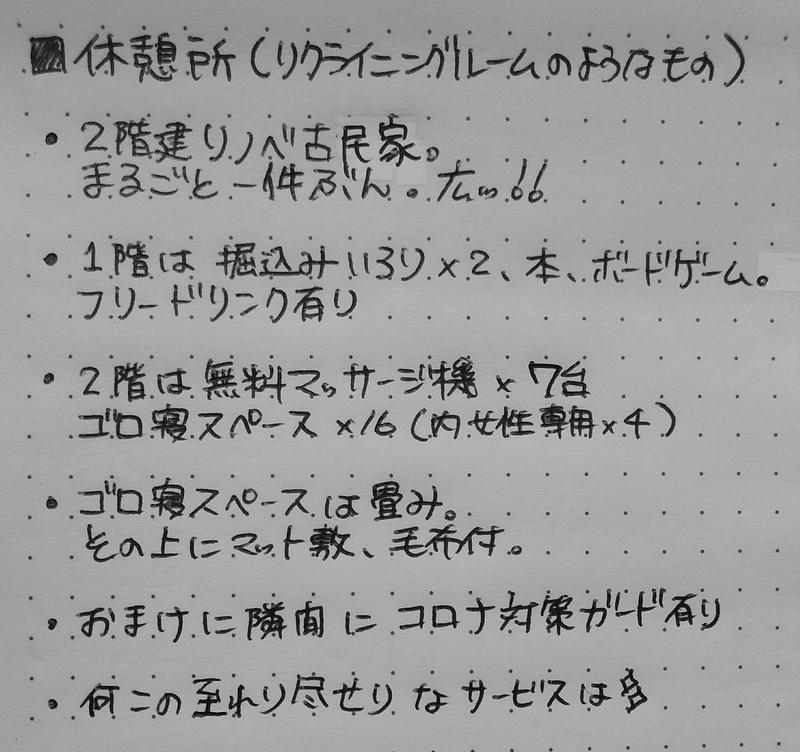 ■休憩所(リクライニングルームのようなもの)
・2階建リノベ古民家。
まるごと一件ぶん。広ッ!!
・1階は掘込みいろり×2、本、ボードゲーム。
フリードリンク有り
・2階は無料マッサージ機×7台
ゴロ寝スペース×16(内女性専用×4)
・ゴロ寝スペースは畳み。
その上にマット敷、毛布付。
・おまけに隣間にコロナ対策ガード有り
・何この至れり尽せりなサービスは